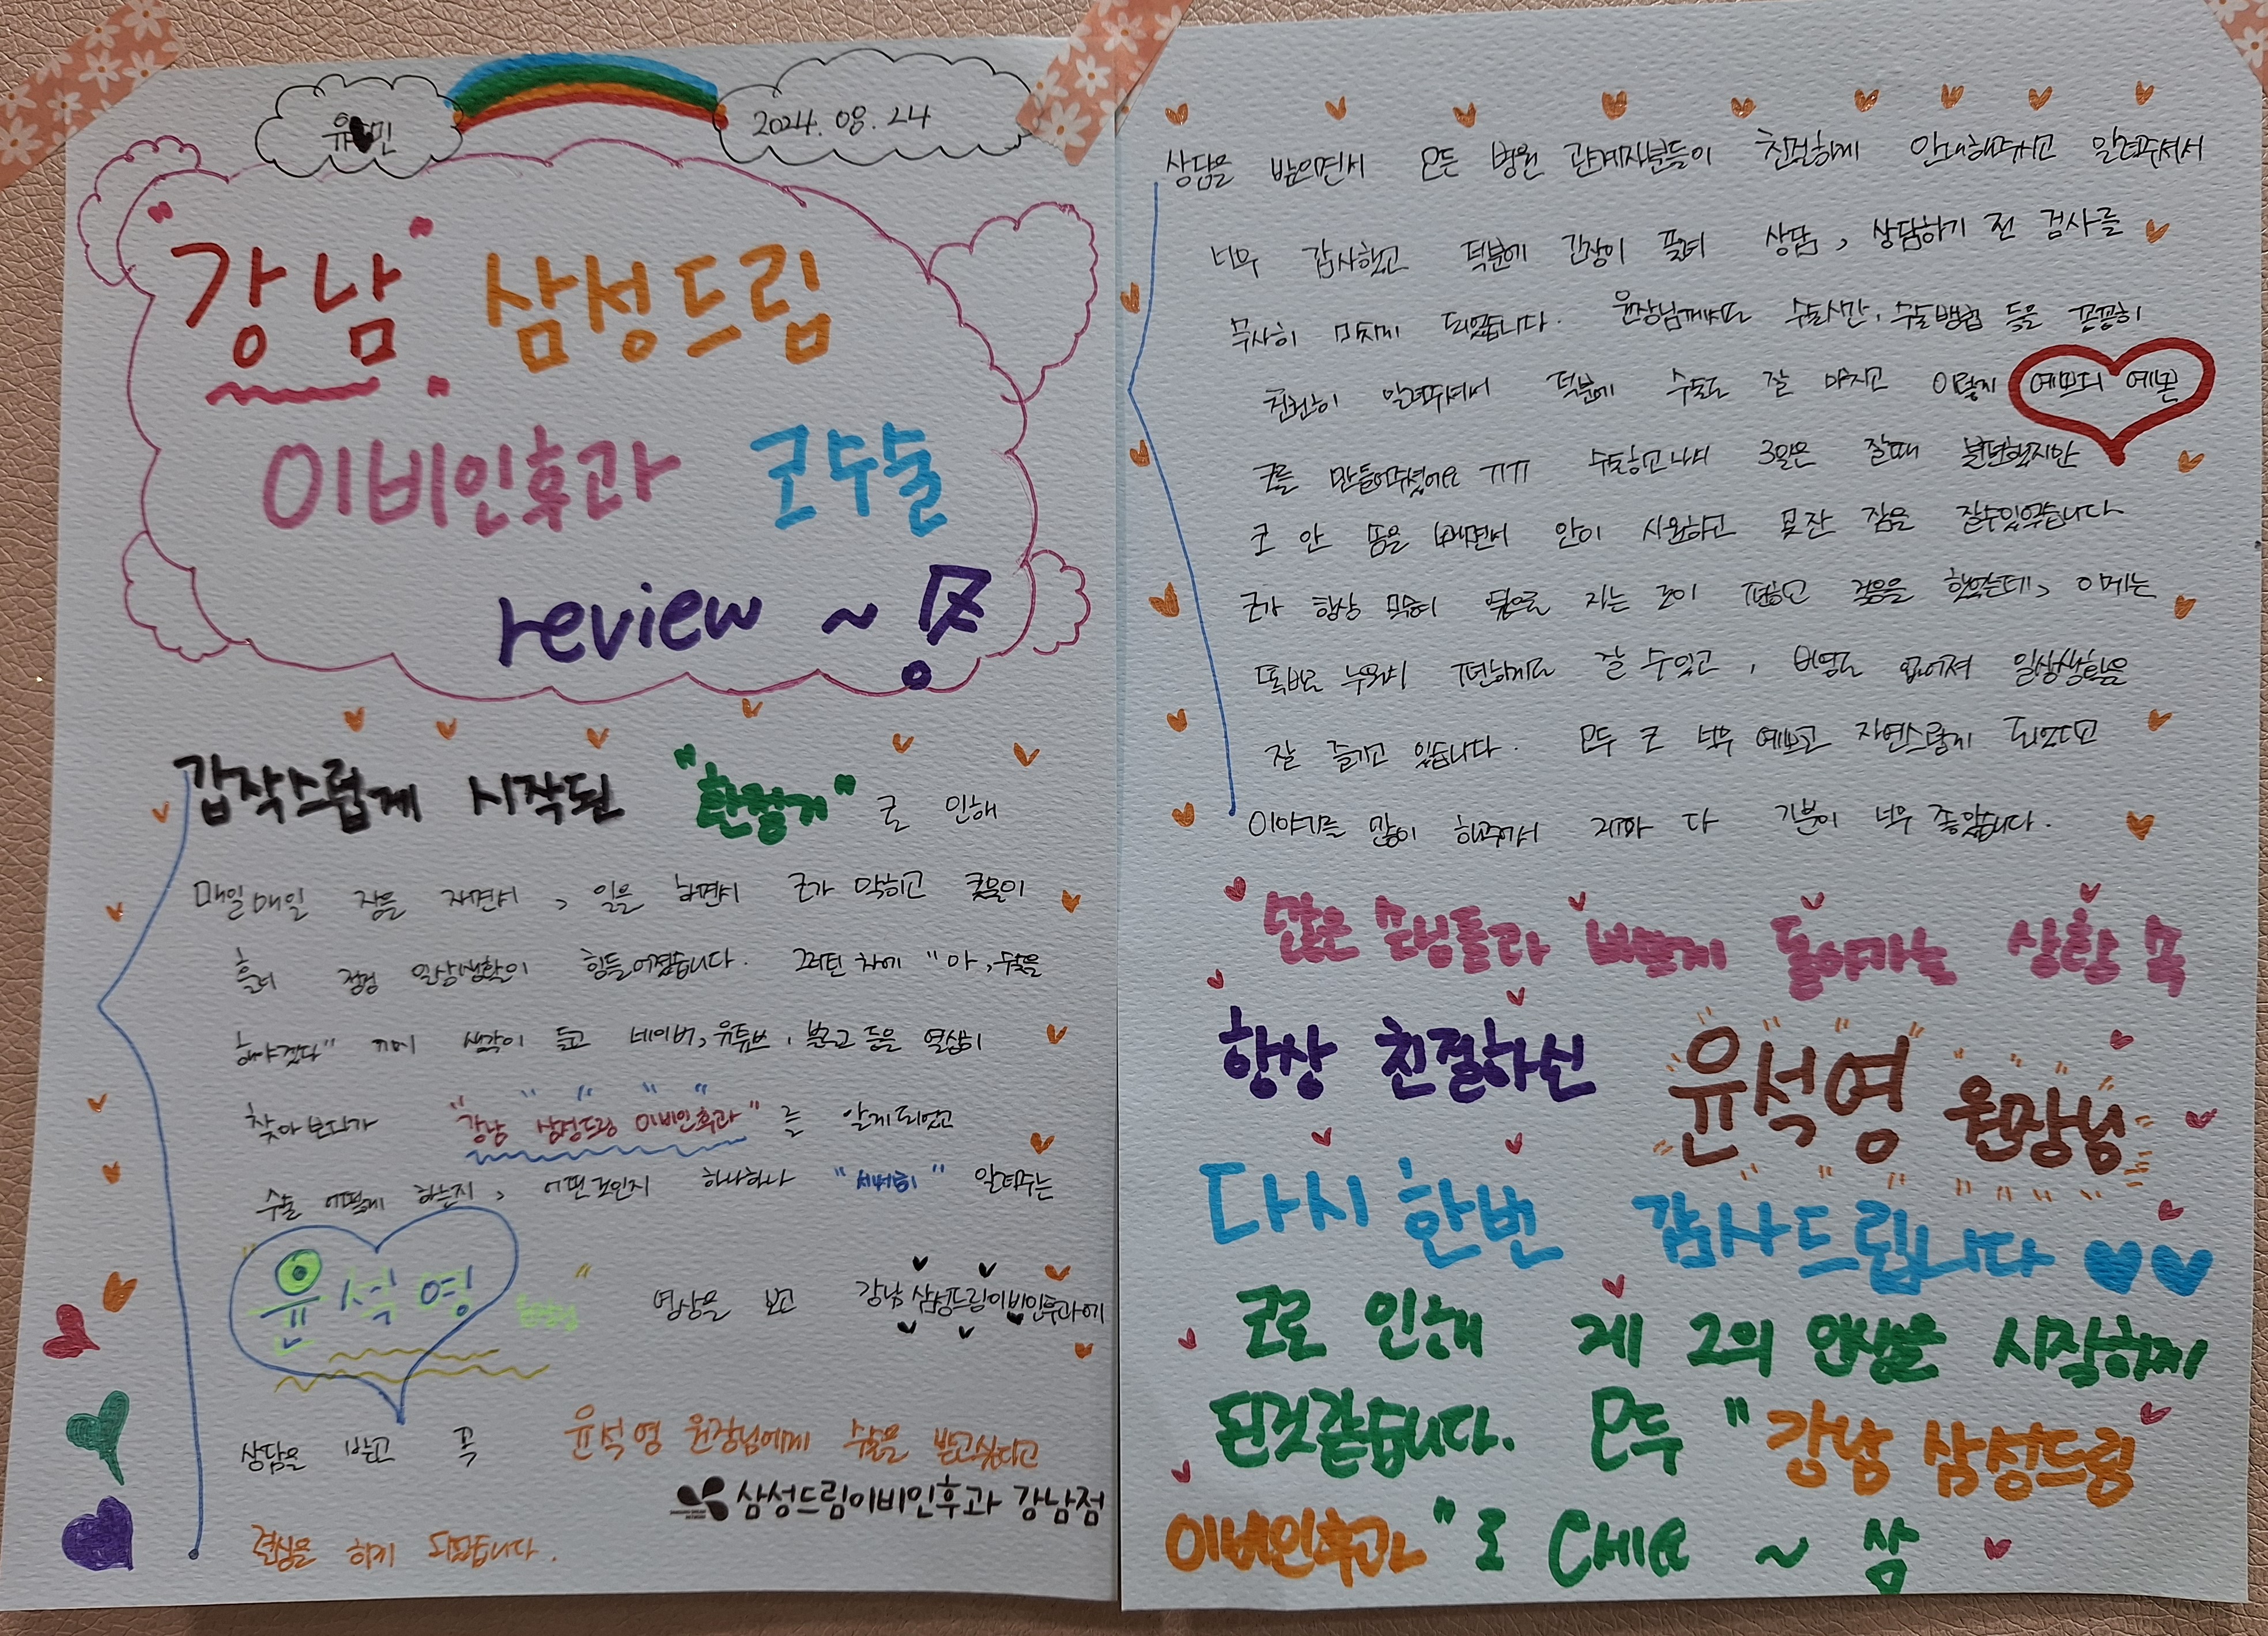 유 민
2024. 08. 24
"강남" 삼성드림
이비인후과 코수술
review ~!
갑작스럽게 시작된 "환절기"로 인해
매일매일 잠을 자면서, 일을 하면서 코가 막히고 콧물이
흘러 점점 일상생활이 힘들어졌습니다. 그러던 차에 "아, 수술을
해야겠다" 생각이 들고 네이버, 유튜브, 블로그 등을 열심히
찾아보다가 "강남 삼성드림 이비인후과"를 알게되었고
수술 어떻게 하는지, 어떤것인지 하나하나 "세세히" 알려주는
"윤석영 원장님" 영상을 보고 강남 삼성드림이비인후과에
상담을 받고 꼭 윤석영 원장님에게 수술을 받고싶다고
삼성드림이비인후과 강남점
결심을 하게 되었습니다.
상담을 받으면서 모든 병원 관계자분들이 친절하게 안내해주시고 알려주셔서
너무 감사했고 덕분에 긴장이 풀려 상담, 상담하기 전 검사를
무사히 마치게 되었습니다. 원장님께서도 수술시간, 수술방법 등을 꼼꼼히
천천히 알려주셔서 덕분에 수술도 잘 마치고 이렇게 예쁘디 예쁜
코를 만들어주셨어요 ㅠㅠ 수술하고나서 3일은 잘때 불편했지만
코 안 솜을 빼면서 안이 시원하고 편한 잠을 잘수있었습니다
코가 항상 막혀 옆으로 자는 것이 편하고 했었는데, 이제는
똑바로 누워서 편하게도 잘 수 있고, 비염도 없어져 일상생활을
잘 즐기고 있습니다. 모두 코 너무 예쁘고 자연스럽게 되었다고
이야기를 많이 해주셔서 제가 다 기분이 너무 좋았습니다.
많은 손님들과 바쁘게 돌아가는 상황 속
항상 친절하신 윤석영 원장님
다시 한번 감사드립니다 ♥♥
코로 인해 제 2의 인생을 시작하게
된것같습니다. 모두 "강남 삼성드림
이비인후과"로 오세요 ~ 삼